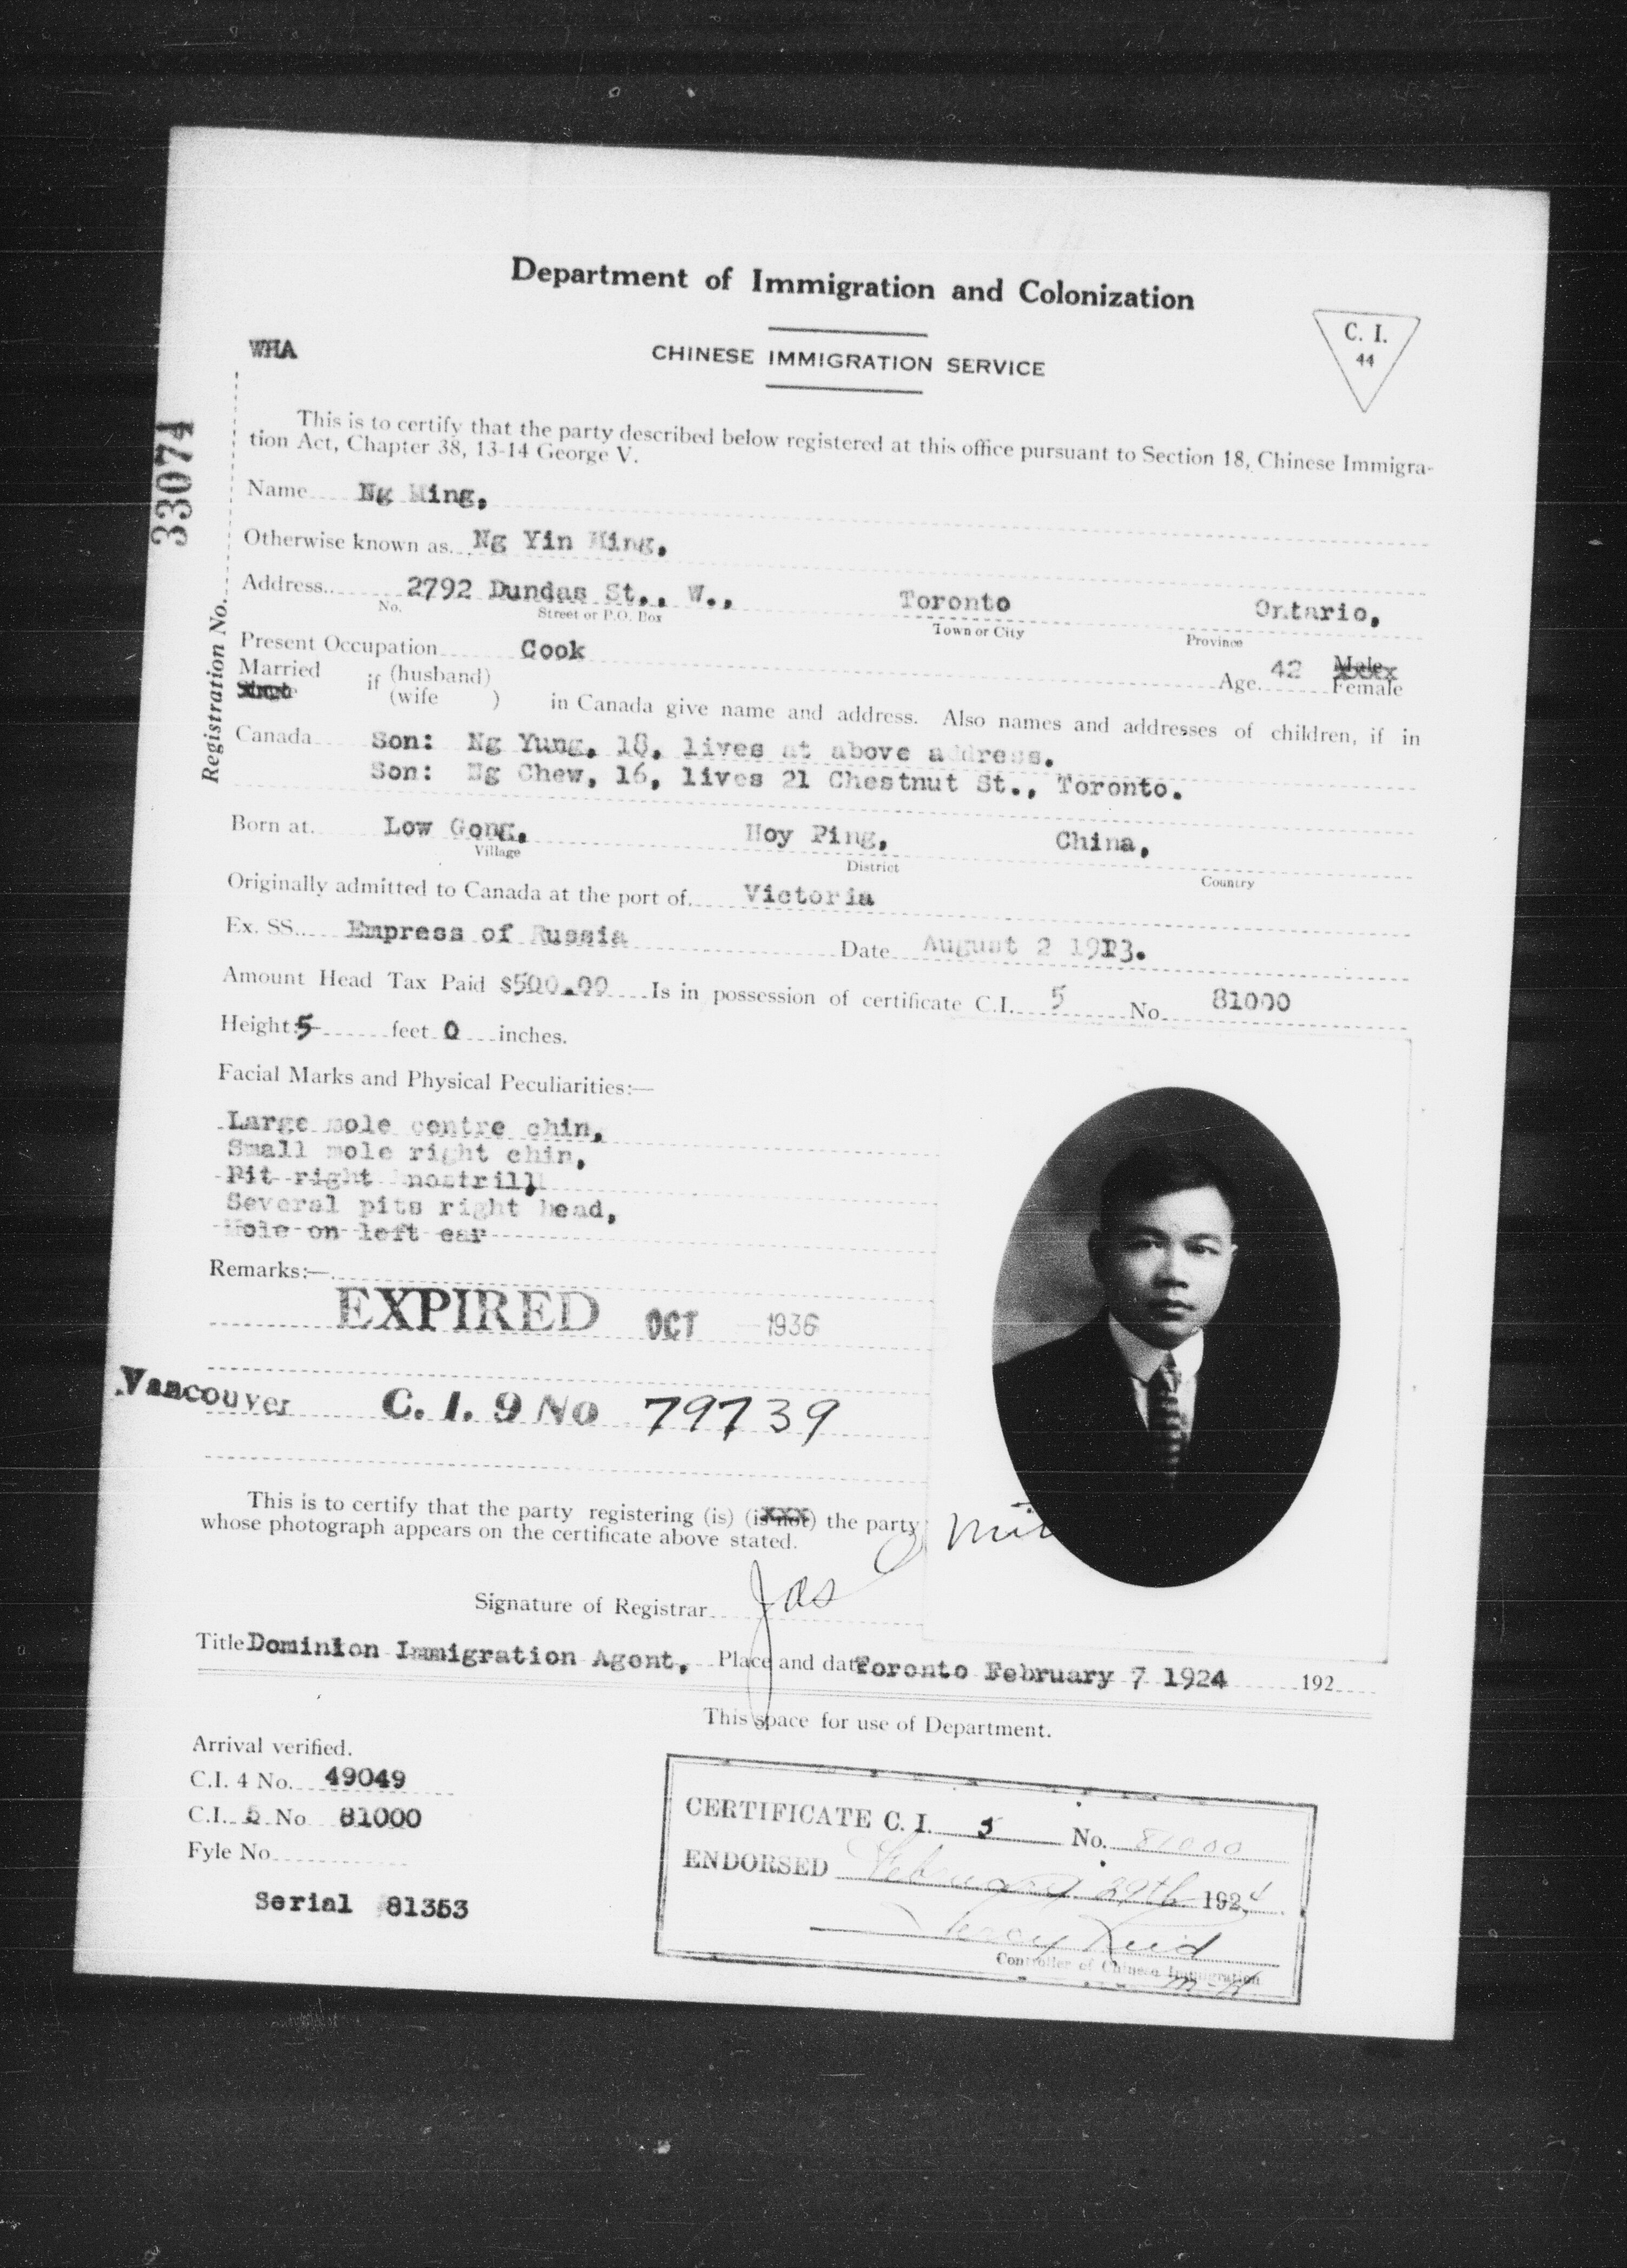 Department of Immigration and Colonization
C. I.
44
WHA
CHINESE IMMIGRATION SERVICE
Registration No. 33071
This is to certify that the party described below registered at this office pursuant to Section 18, Chinese Immigra-
tion Act, Chapter 38, 13-14 George V.
Name Ng Ming,
Otherwise known as Ng Yin Ming,
Address 2792 Dundas St., W., Toronto Ontario,
No. Street or P.O. Box Town or City Province
Present Occupation Cook Age 42 Male Female
Married Single if (husband) (wife ) in Canada give name and address. Also names and addresses of children, if in
Canada Son: Ng Yung, 18, lives at above address.
Son: Ng Chew, 16, lives 21 Chestnut St., Toronto.
Born at Low Gong, Hoy Ping, China,
Village District Country
Originally admitted to Canada at the port of Victoria
Ex. SS. Empress of Russia Date August 2 1913.
Amount Head Tax Paid $500.00 Is in possession of certificate C.I. 5 No. 81000
Height 5 feet 0 inches.
Facial Marks and Physical Peculiarities:—
Large mole centre chin,
Small mole right chin,
Pit right nostril,
Several pits right head,
Mole on left ear
Remarks:—
EXPIRED OCT 1936
Vancouver C. I. 9 No 79739
This is to certify that the party registering (is) (is not) the party
whose photograph appears on the certificate above stated.
Signature of Registrar Jas
Title Dominion Immigration Agent, Place and date Toronto February 7 1924 192
This space for use of Department.
Arrival verified.
C.I. 4 No. 49049
C.I. 5 No 81000
Fyle No
Serial 81353
CERTIFICATE C. I. 5 No. 81000
ENDORSED February 29th 1924
Controller of Chinese Immigration